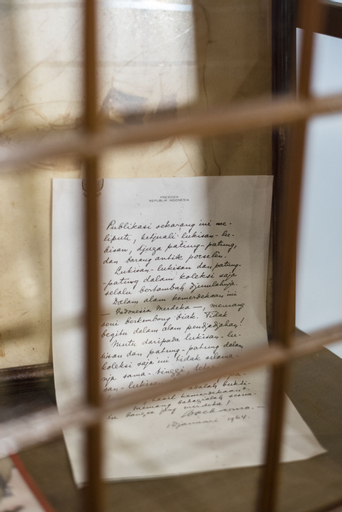 PRESIDEN
REPUBLIK INDONESIA
Publikasi sekarang ini me-
liputi, ketjuali lukisan-lu-
kisan, djuga patung-patung,
dan barang antik porselin.
Lukisan-lukisan dan patung-
patung dalam koleksi saja
selalu bertambah djumlahnja.
Dalam alam kemerdekaan ini
— Indonesia Merdeka —, memang
seni berkembang biak. Tidak
begitu dalam alam pendjadjahan!
Mutu daripada lukisan-lu-
kisan dan patung-patung dalam
koleksi saja ini tidak
nja sama
lukisan
adalah
kemerdekaan
bangsa jang merdeka!
Soekarno.
1964